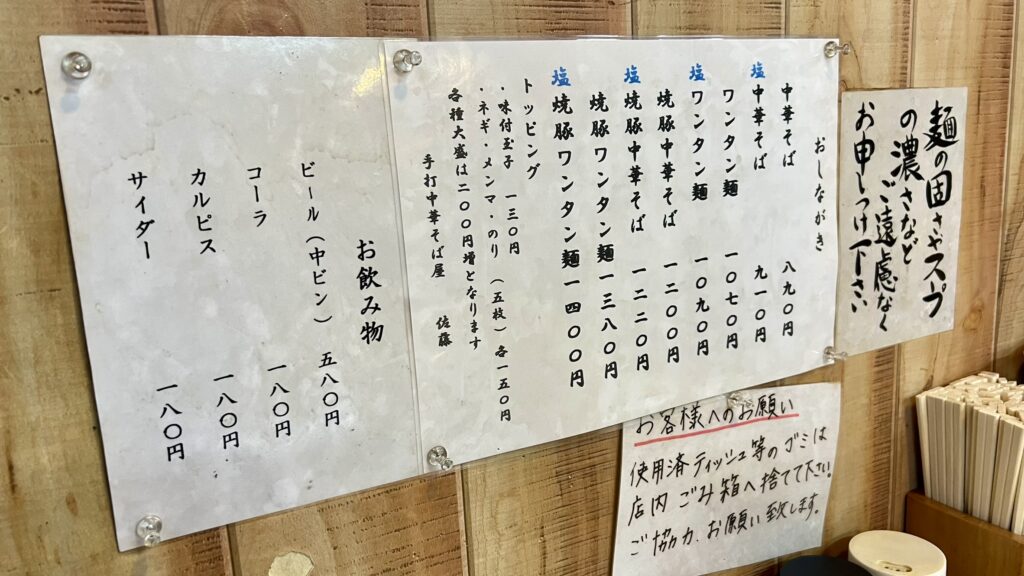 麺の固さやスプ
の濃さなど
ご遠慮なく
お申しつけ下さい
おしながき
中華そば 八九〇円
塩中華そば 九一〇円
ワンタン麺 一〇七〇円
塩ワンタン麺 一〇九〇円
焼豚中華そば 一二〇〇円
塩焼豚中華そば 一二二〇円
焼豚ワンタン麺 一三八〇円
塩焼豚ワンタン麺 一四〇〇円
トッピング
・味付玉子 一三〇円
・ネギ・メンマ・のり(五枚)各一五〇円
各種大盛は二〇〇円増となります
手打中華そば屋 佐藤
お飲み物
ビール(中ビン) 五八〇円
コーラ 一八〇円
カルピス 一八〇円
サイダー 一八〇円
お客様へのお願い
使用済ティッシュ等のゴミは
店内ごみ箱へ捨てて下さい。
ご協力、お願い致します。